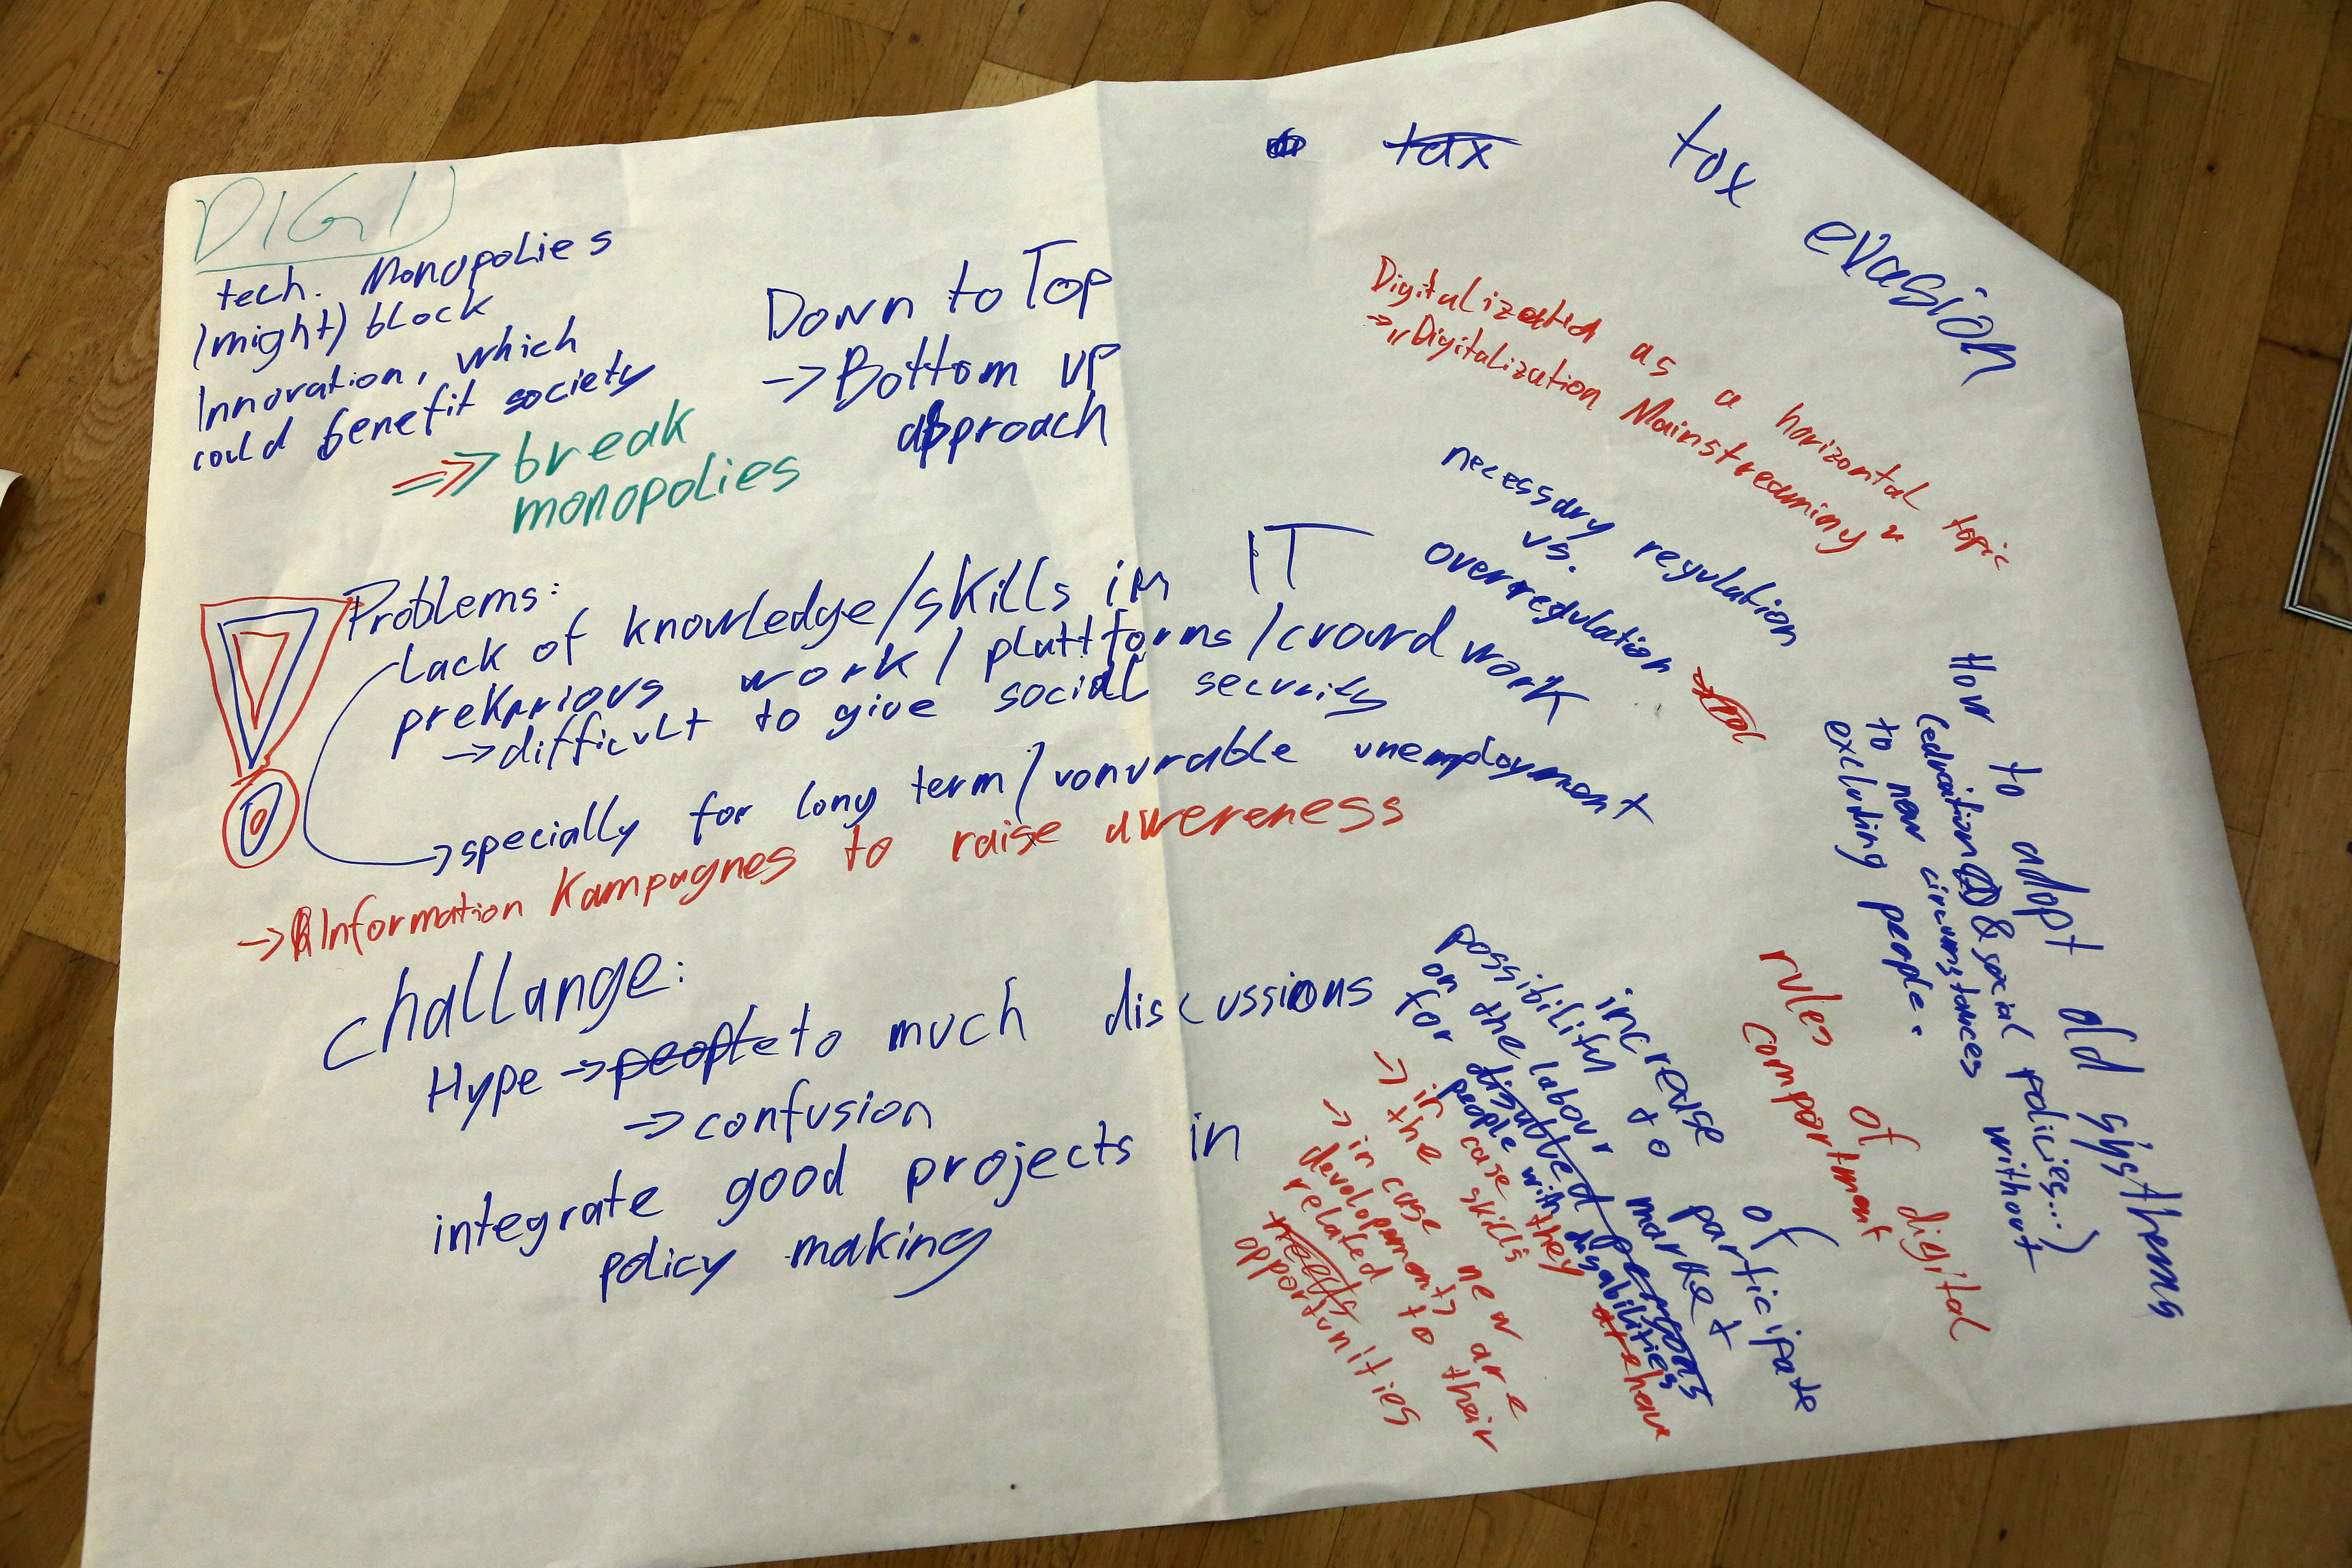 DIGI
tech. Monopolies
(might) block
Innovation, which
could benefit society
=>> break
monopolies
Down to Top
-> Bottom up
approach
Problems:
Lack of knowledge/skills in IT
prekarious work / plattforms / crowd work
-> difficult to give social security
-> specially for long term / vonurable unemployment
-> Information Kampagnes to raise awereness
challange:
Hype -> people to much discussions
-> confusion
integrate good projects in
policy making
tax
tax evasion
Digitalizatid as a horizontal topic
-> "Digitalization Mainstreaming"
necessary regulation
vs.
overregulation
How to adopt old systhems
(edu & social policies...)
to new circumstances without
excluding people.
rules of digital
comportment
increase of
possibility to participate
on the labour market
for disabled persons
people with disabilities
-> in case they are have
the skills
-> in case new are
developments
related to their
needs
opportunities